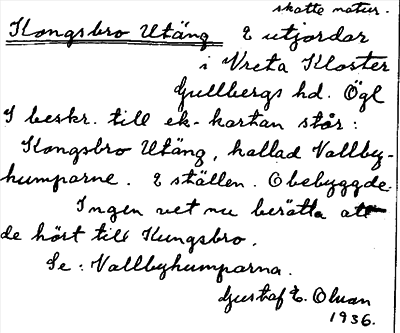 skatte natur.
Kongsbro Utäng 2 utjordar
i Vreta Kloster
Gullbergs hd. Ögl
I beskr. till ek-kartan står:
Kongsbro Utäng, kallad Vallby-
humparne. 2 ställen. Obebyggde.
Ingen vet nu berätta att
de hört till Kungsbro.
Se: Vallbyhumparna.
Gustaf E. Olsson
1936.